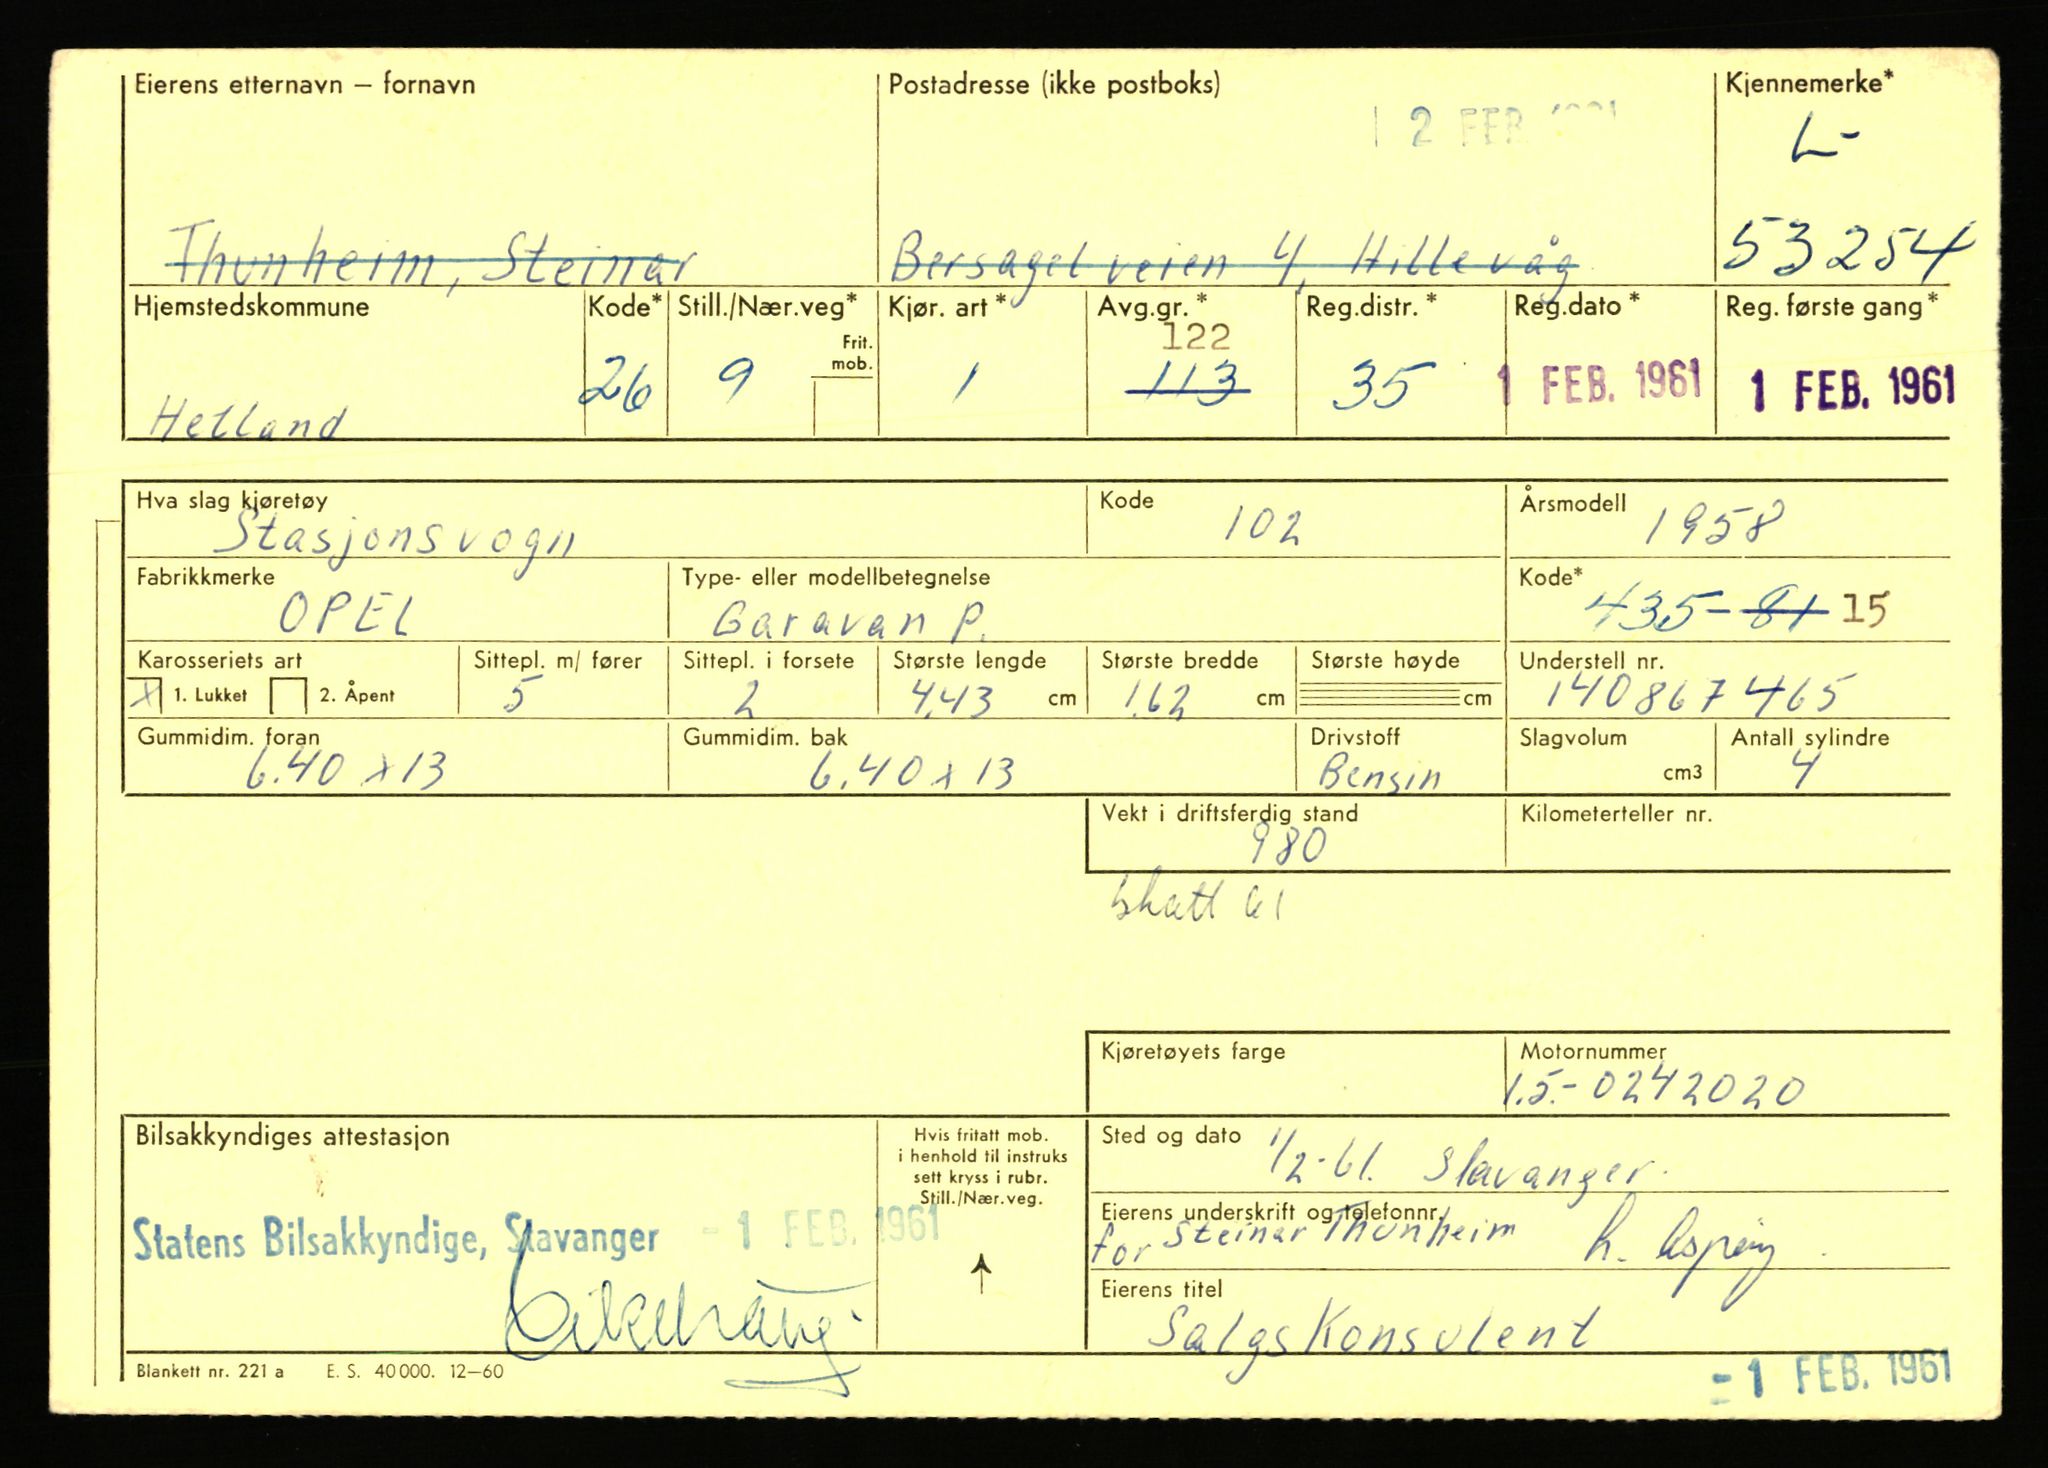 Eierens etternavn – fornavn
Postadresse (ikke postboks)
Kjennemerke*
12 FEB 1961
L-
53254
Thunheim, Steinar
Bersagel veien 4, Hillevåg
Hjemstedskommune
Kode*
Still./Nær.veg*
Frit. mob.
Kjør. art*
Avg.gr.*
Reg.distr.*
Reg.dato*
Reg. første gang*
122
Hetland
26
9
1
113
35
1 FEB. 1961
1 FEB. 1961
Hva slag kjøretøy
Stasjonsvogn
Kode
102
Årsmodell
1958
Fabrikkmerke
OPEL
Type- eller modellbetegnelse
Caravan P.
Kode*
435-81 15
Karosseriets art
X 1. Lukket 2. Åpent
Sittepl. m/ fører
5
Sittepl. i forsete
2
Største lengde
4.43 cm
Største bredde
1.62 cm
Største høyde
cm
Understell nr.
140867465
Gummidim. foran
6.40 x 13
Gummidim. bak
6.40 x 13
Drivstoff
Bensin
Slagvolum
cm3
Antall sylindre
4
Vekt i driftsferdig stand
980
Kilometerteller nr.
skatt 61
Kjøretøyets farge
Motornummer
1.5.-0242020
Bilsakkyndiges attestasjon
Statens Bilsakkyndige, Stavanger
-1 FEB. 1961
Hvis fritatt mob.
i henhold til instruks
sett kryss i rubr.
Still./Nær.veg.
Sted og dato
1/2-61. Stavanger.
Eierens underskrift og telefonnr.
for Steinar Thunheim
Eierens titel
Salgskonsulent
Blankett nr. 221 a E. S. 40 000. 12–60
-1 FEB. 1961